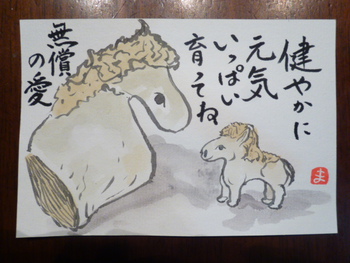 健やかに
元気
いっぱい
育ってね
無償
の愛
ま